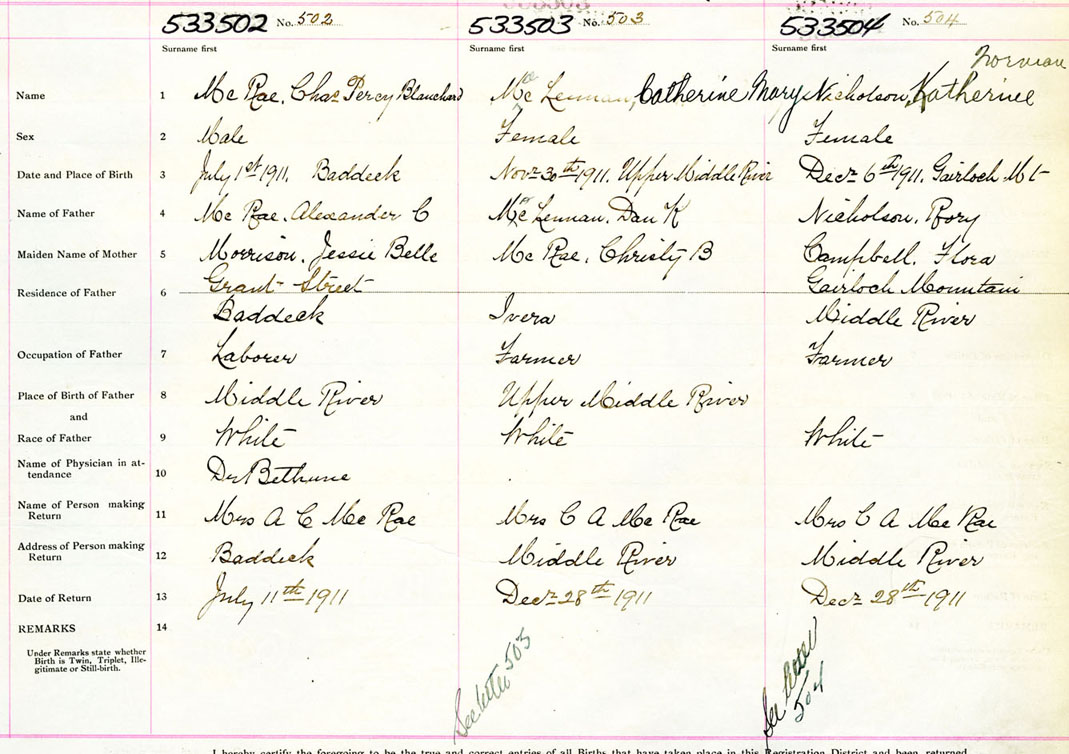 533502 No. 502 533503 No. 503 533504 No. 504
Surname first Surname first Surname first
Norman
Name 1 Mc Rae, Chas Percy Blanchard Mc Lennan, Catherine Mary Nicholson, Katherine
Sex 2 Male Female Female
Date and Place of Birth 3 July 1st 1911. Baddeck Novr 30th 1911. Upper Middle River Decr 6th 1911. Gairloch Mt
Name of Father 4 Mc Rae, Alexander C Mc Lennan, Dan K Nicholson, Rory
Maiden Name of Mother 5 Morrison, Jessie Belle Mc Rae, Christy B Campbell, Flora
Grant Street Gairloch Mountain
Residence of Father 6
Baddeck Ivera Middle River
Occupation of Father 7 Laborer Farmer Farmer
Place of Birth of Father 8 Middle River Upper Middle River
and
Race of Father 9 White White White
Name of Physician in at-
tendance 10 Dr Bethune
Name of Person making
Return 11 Mrs A C Mc Rae Mrs C A Mc Rae Mrs C A Mc Rae
Address of Person making
Return 12 Baddeck Middle River Middle River
Date of Return 13 July 11th 1911 Decr 28th 1911 Decr 28th 1911
REMARKS 14
Under Remarks state whether
Birth is Twin, Triplet, Ille-
gitimate or Still-birth.
See letter 503
See letter
504
I hereby certify the foregoing to be the true and correct entries of all Births that have taken place in this Registration District and been returned